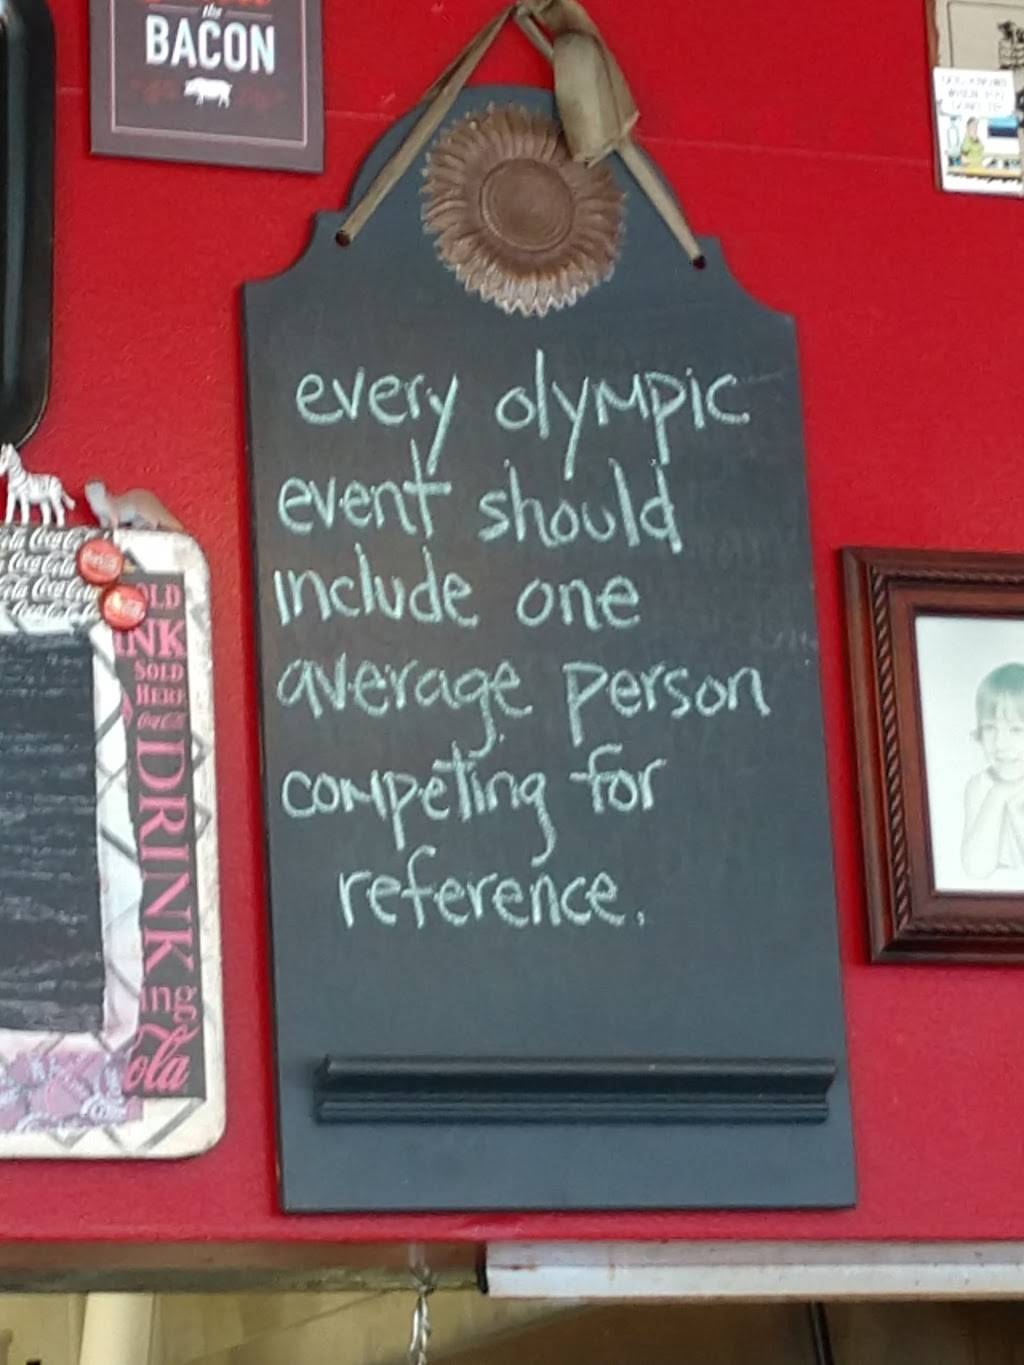 the
BACON
every olympic
event should
include one
average person
competing for
reference.
Coca-Cola
SOLD
HERE
DRINK
ing